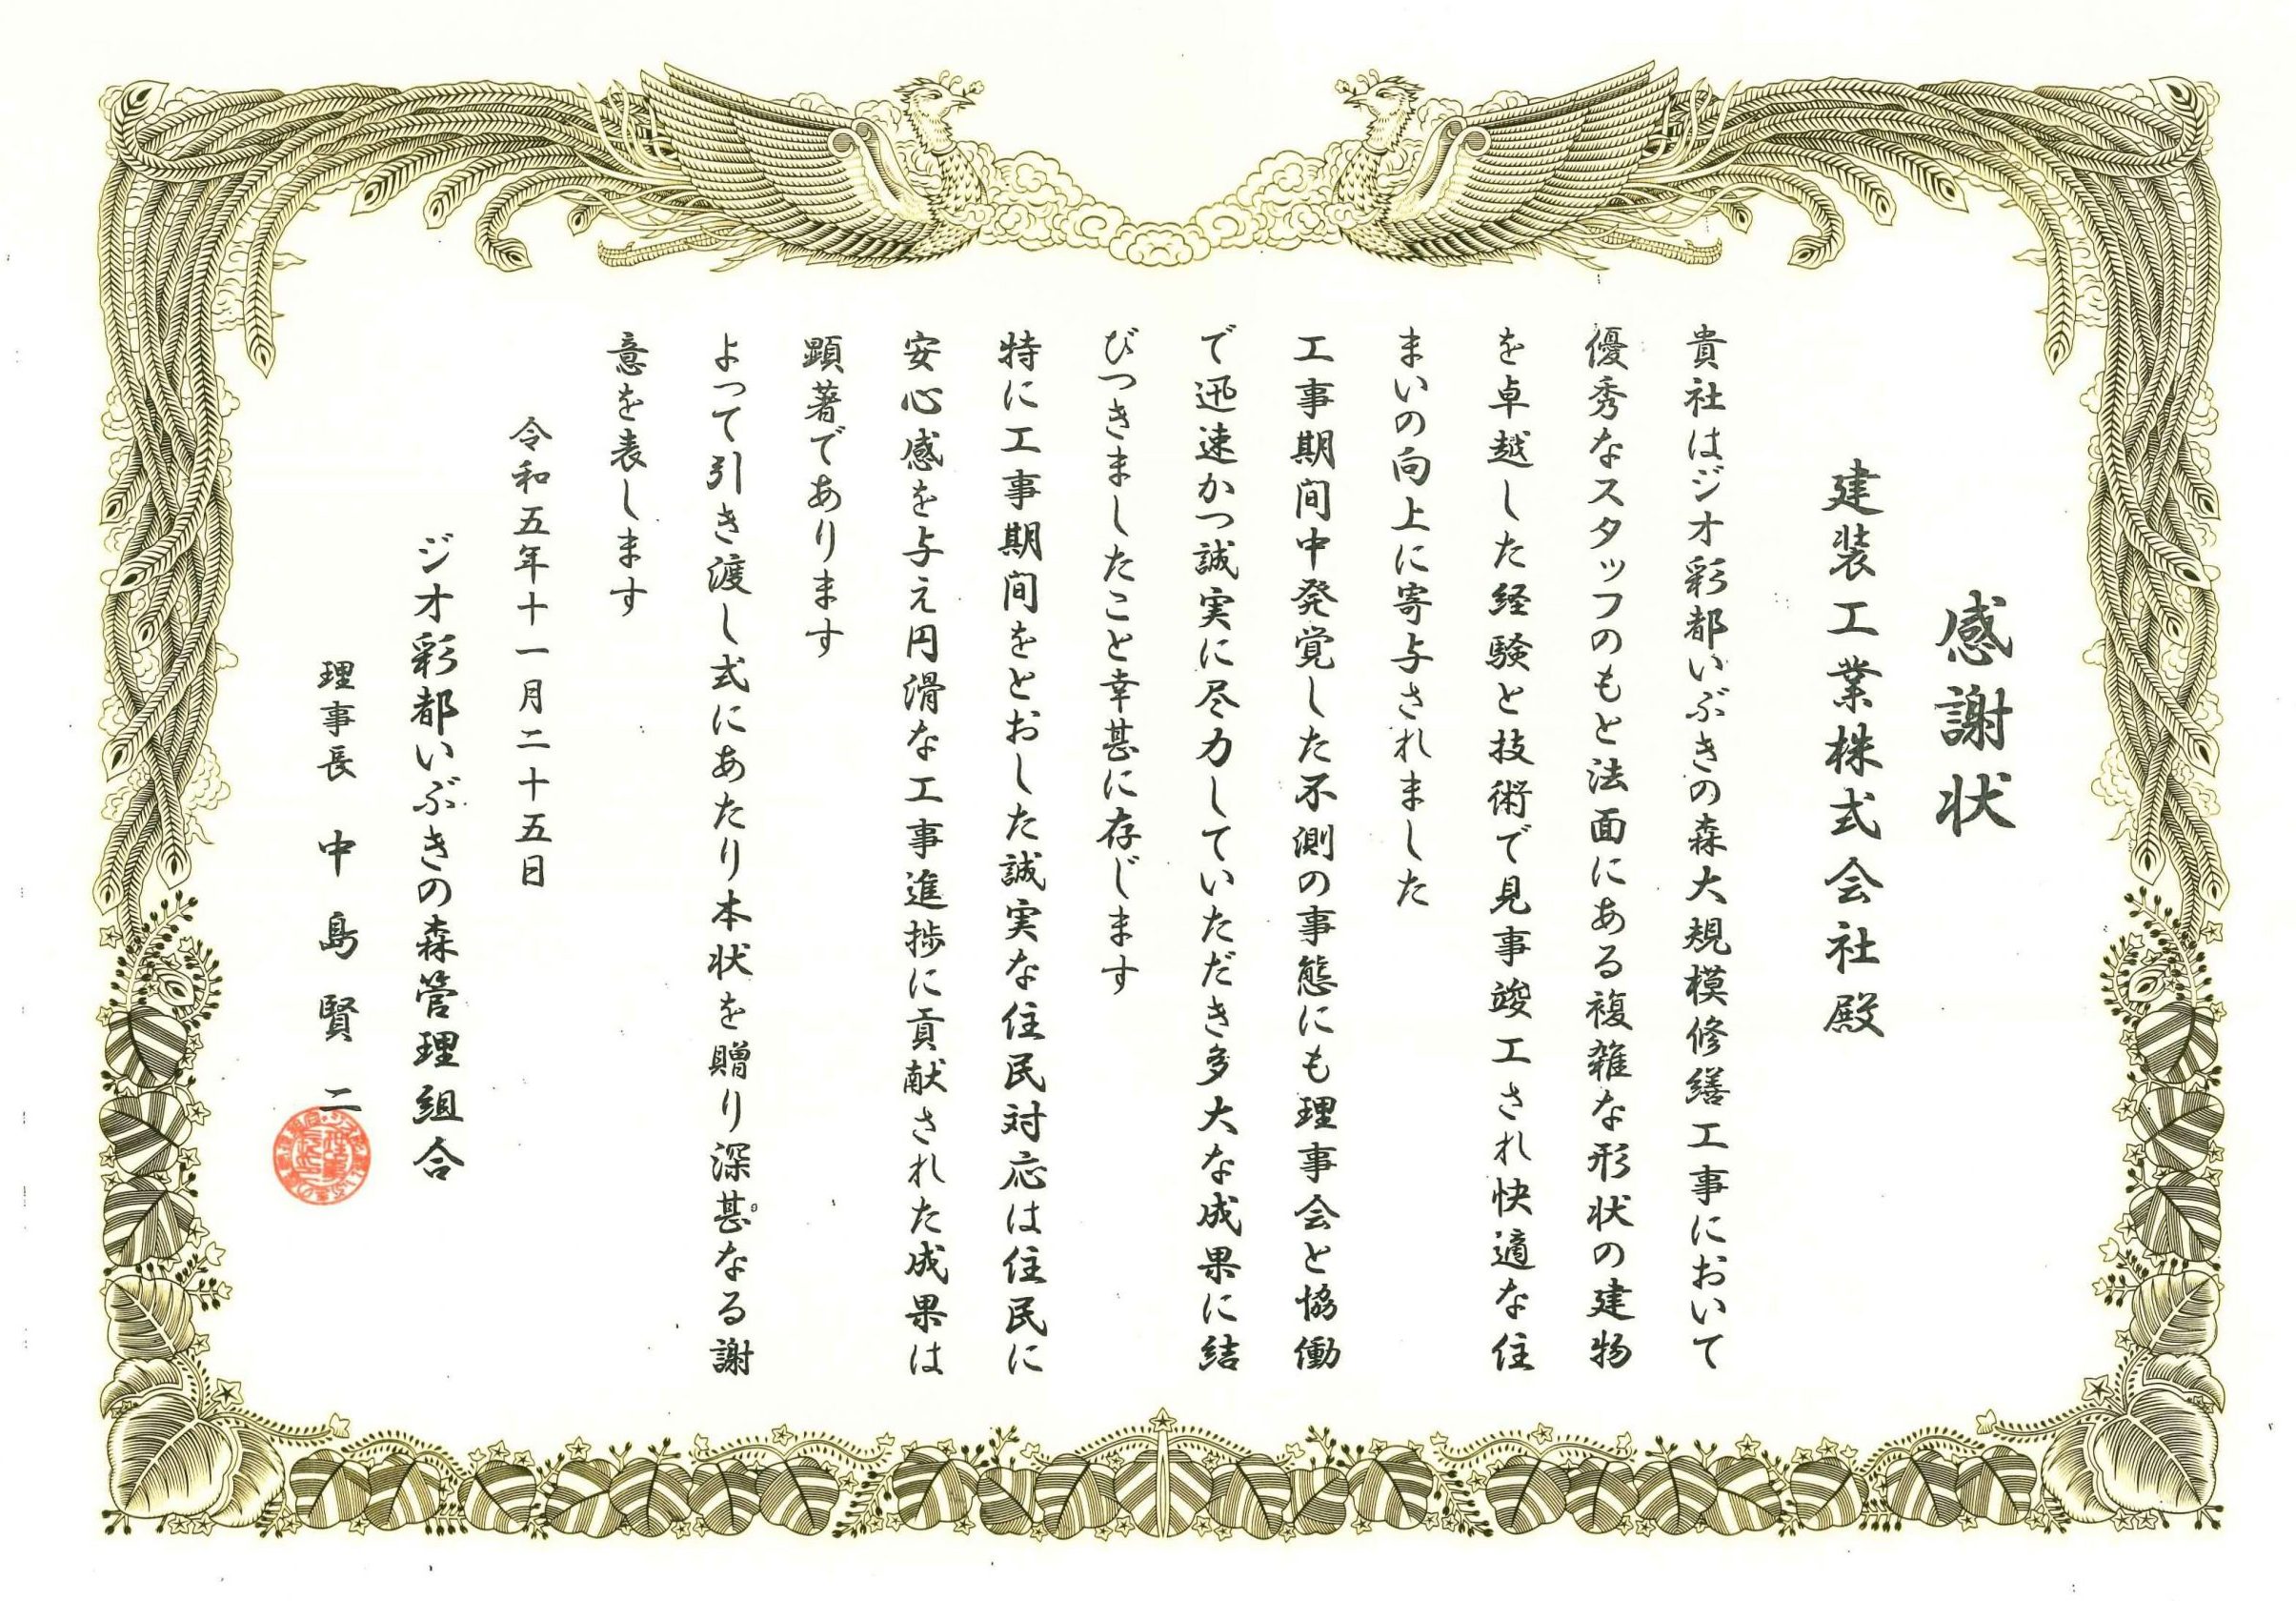 感謝状
建装工業株式会社殿
貴社はジオ彩都いぶきの森大規模修繕工事において
優秀なスタッフのもと法面にある複雑な形状の建物
を卓越した経験と技術で見事竣工され快適な住
まいの向上に寄与されました
工事期間中発覚した不測の事態にも理事会と協働
で迅速かつ誠実に尽力していただき多大な成果に結
びつきましたこと幸甚に存じます
特に工事期間をとおした誠実な住民対応は住民に
安心感を与え円滑な工事進捗に貢献された成果は
顕著であります
よって引き渡し式にあたり本状を贈り深甚なる謝
意を表します
令和五年十一月二十五日
ジオ彩都いぶきの森管理組合
理事長 中島賢二